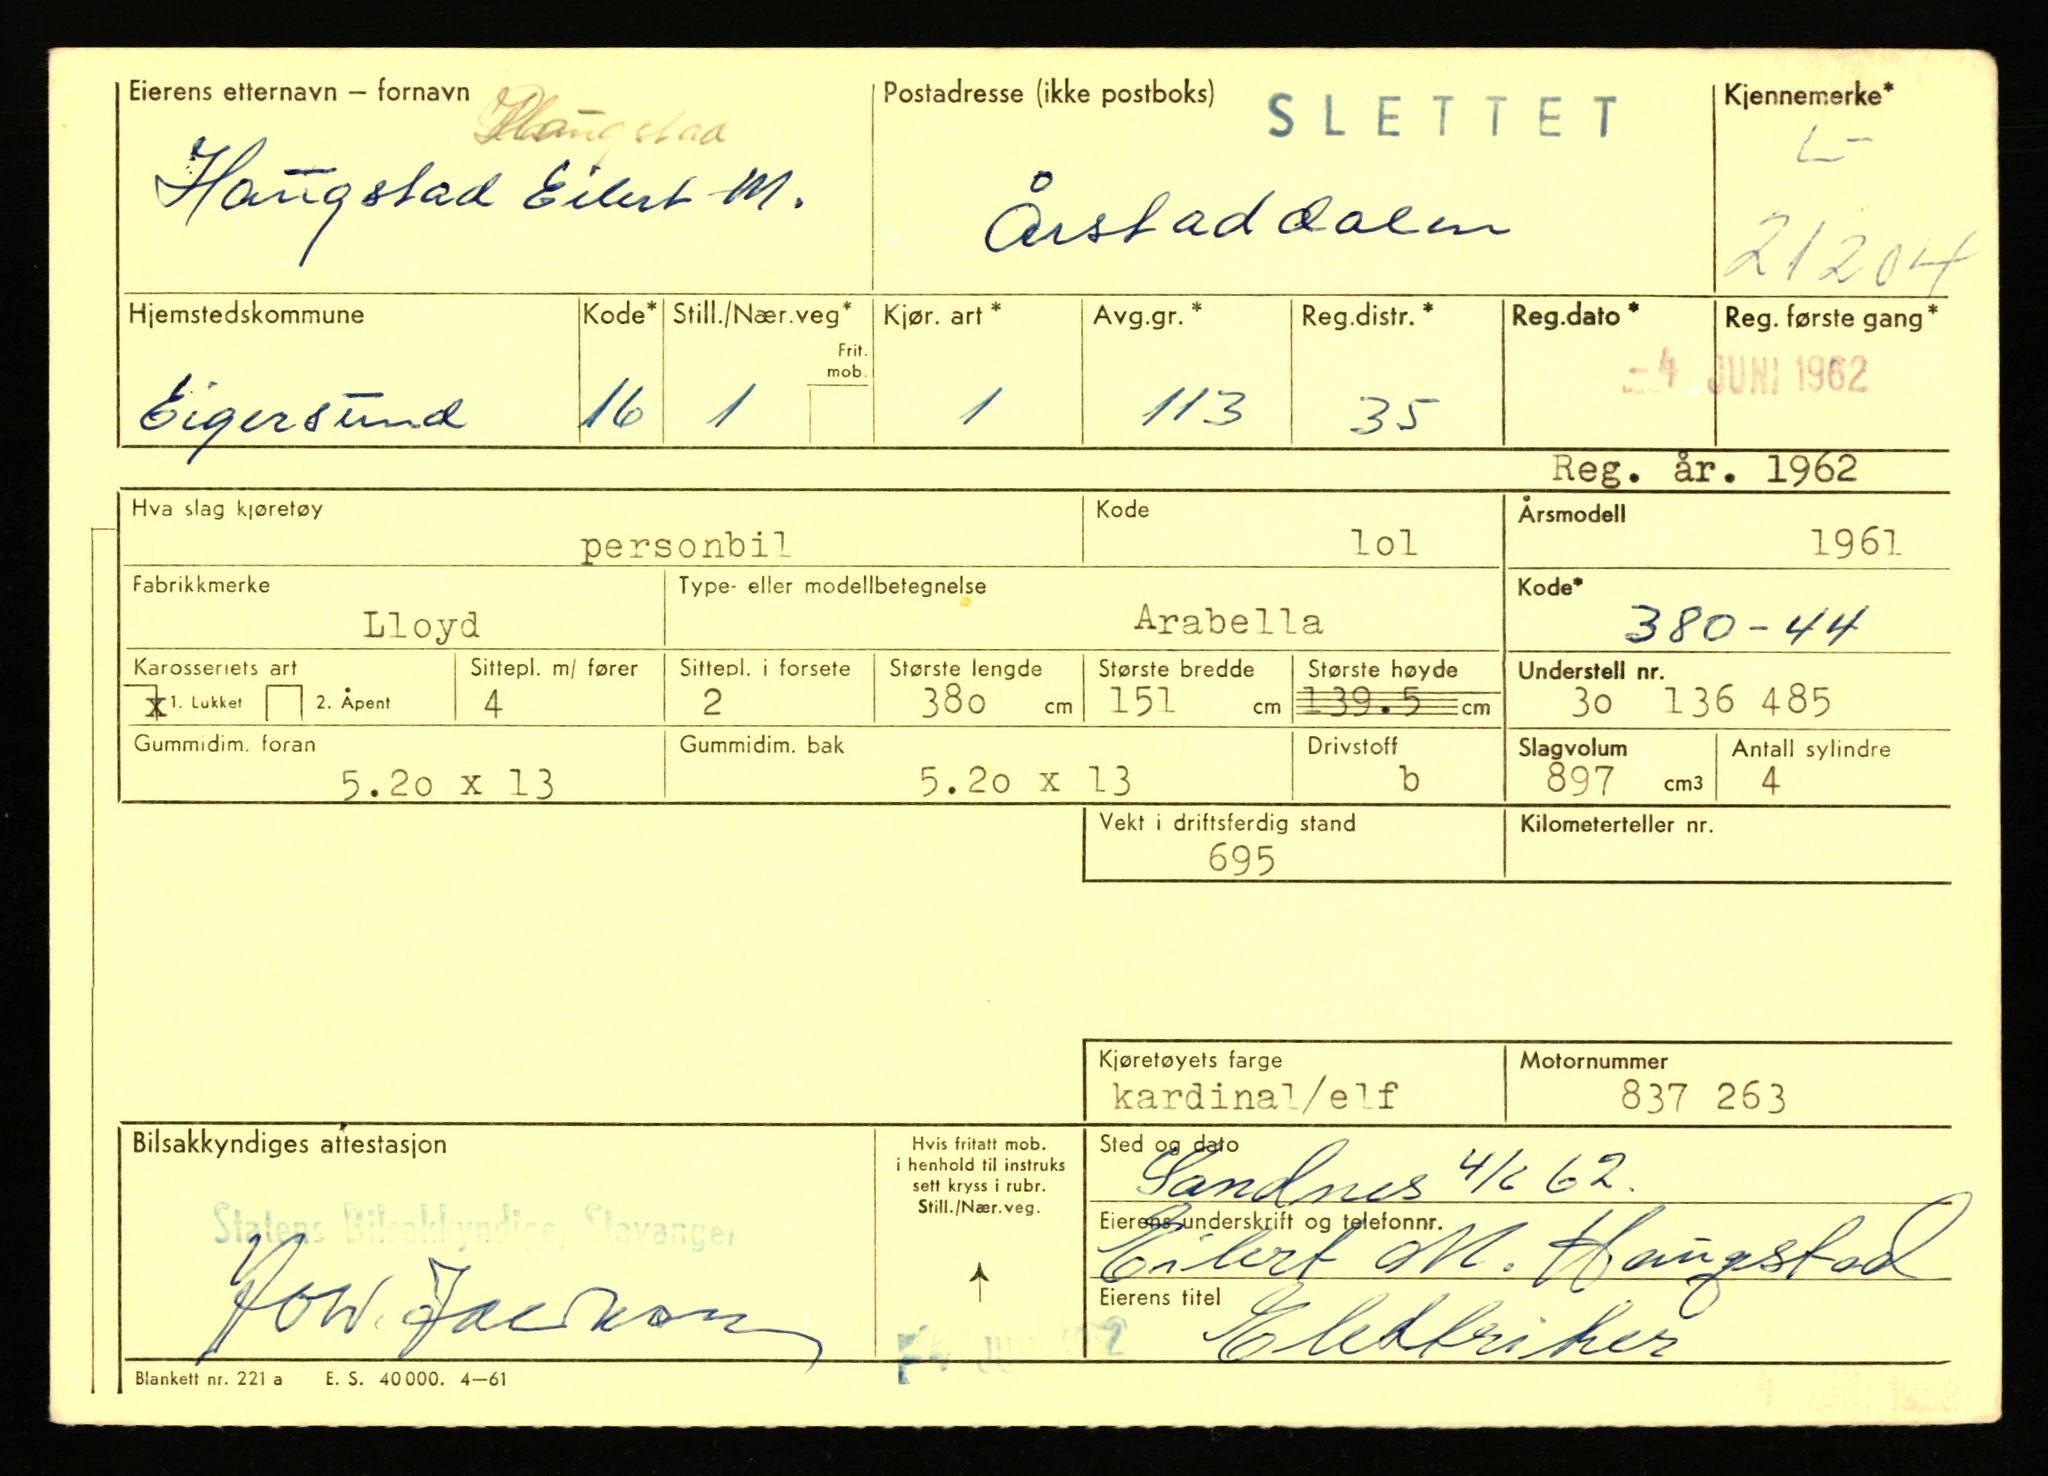 Eierens etternavn – fornavn
Haugstad
Haugstad Eilert M.
Postadresse (ikke postboks)
SLETTET
Årstaddalen
Kjennemerke*
L-
21204
Hjemstedskommune
Eigersund
Kode*
16
Still./Nær.veg*
Frit.
mob.
1
Kjør. art *
1
Avg.gr. *
113
Reg.distr. *
35
Reg.dato *
Reg. første gang*
-4 JUNI 1962
Reg. år. 1962
Hva slag kjøretøy
personbil
Kode
lol
Årsmodell
1961
Fabrikkmerke
Lloyd
Type- eller modellbetegnelse
Arabella
Kode*
380-44
Karosseriets art
x 1. Lukket 2. Åpent
Sittepl. m/ fører
4
Sittepl. i forsete
2
Største lengde
38o cm
Største bredde
151 cm
Største høyde
139.5 cm
Understell nr.
3o 136 485
Gummidim. foran
5.2o x 13
Gummidim. bak
5.2o x 13
Drivstoff
b
Slagvolum
897 cm3
Antall sylindre
4
Vekt i driftsferdig stand
695
Kilometerteller nr.
Kjøretøyets farge
kardinal/elf
Motornummer
837 263
Bilsakkyndiges attestasjon
Statens Bilsakkyndige, Stavanger
Hvis fritatt mob.
i henhold til instruks
sett kryss i rubr.
Still./Nær.veg.
Sted og dato
Sandnes 4/6 62.
Eierens underskrift og telefonnr.
Eilert M. Haugstad
Eierens titel
Elektriker
Blankett nr. 221 a E. S. 40 000. 4–61